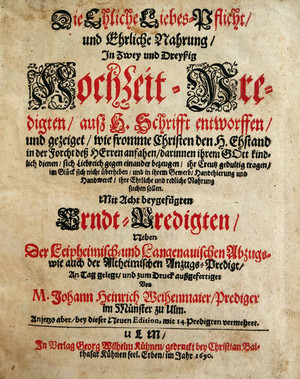 Die Ehliche Liebes-Pflicht/
und Ehrliche Nahrung/
In Zwey und Dreyßig
Hochzeit-Pre-
digten/ auß H. Schrifft entworffen/
und gezeiget/ wie fromme Christen den H. Ehstand
in der Forcht deß HErren anfahen/ darinnen ihrem GOtt kind-
lich dienen/ sich Liebreich gegen einander bezeugen/ ihr Creutz gedultig tragen/
im Glück sich nicht überheben/ und in ihrem Gewerb/ Handthierung und
Handwerck/ ihre Ehrliche und redliche Nahrung
suchen sollen.
Mit Acht beygefügten
Erndt-Predigten/
Neben
Der Leipheimisch-und Langenauischen Abzugs-
wie auch der Altheimischen Anzugs-Predigt/
An Tag gelegt/ und zum Druck außgefertiget
Von
M. Johann Heinrich Weihenmaier/ Prediger
im Münster zu Ulm.
Anjetzo aber/ bey dieser Neuen Edition, mit 14. Predigten vermehret.
ULM/
In Verlag Georg Wilhelm Kühnen/ gedruckt bey Christian Bal-
thasar Kühnen seel. Erben/ im Jahr 1690.